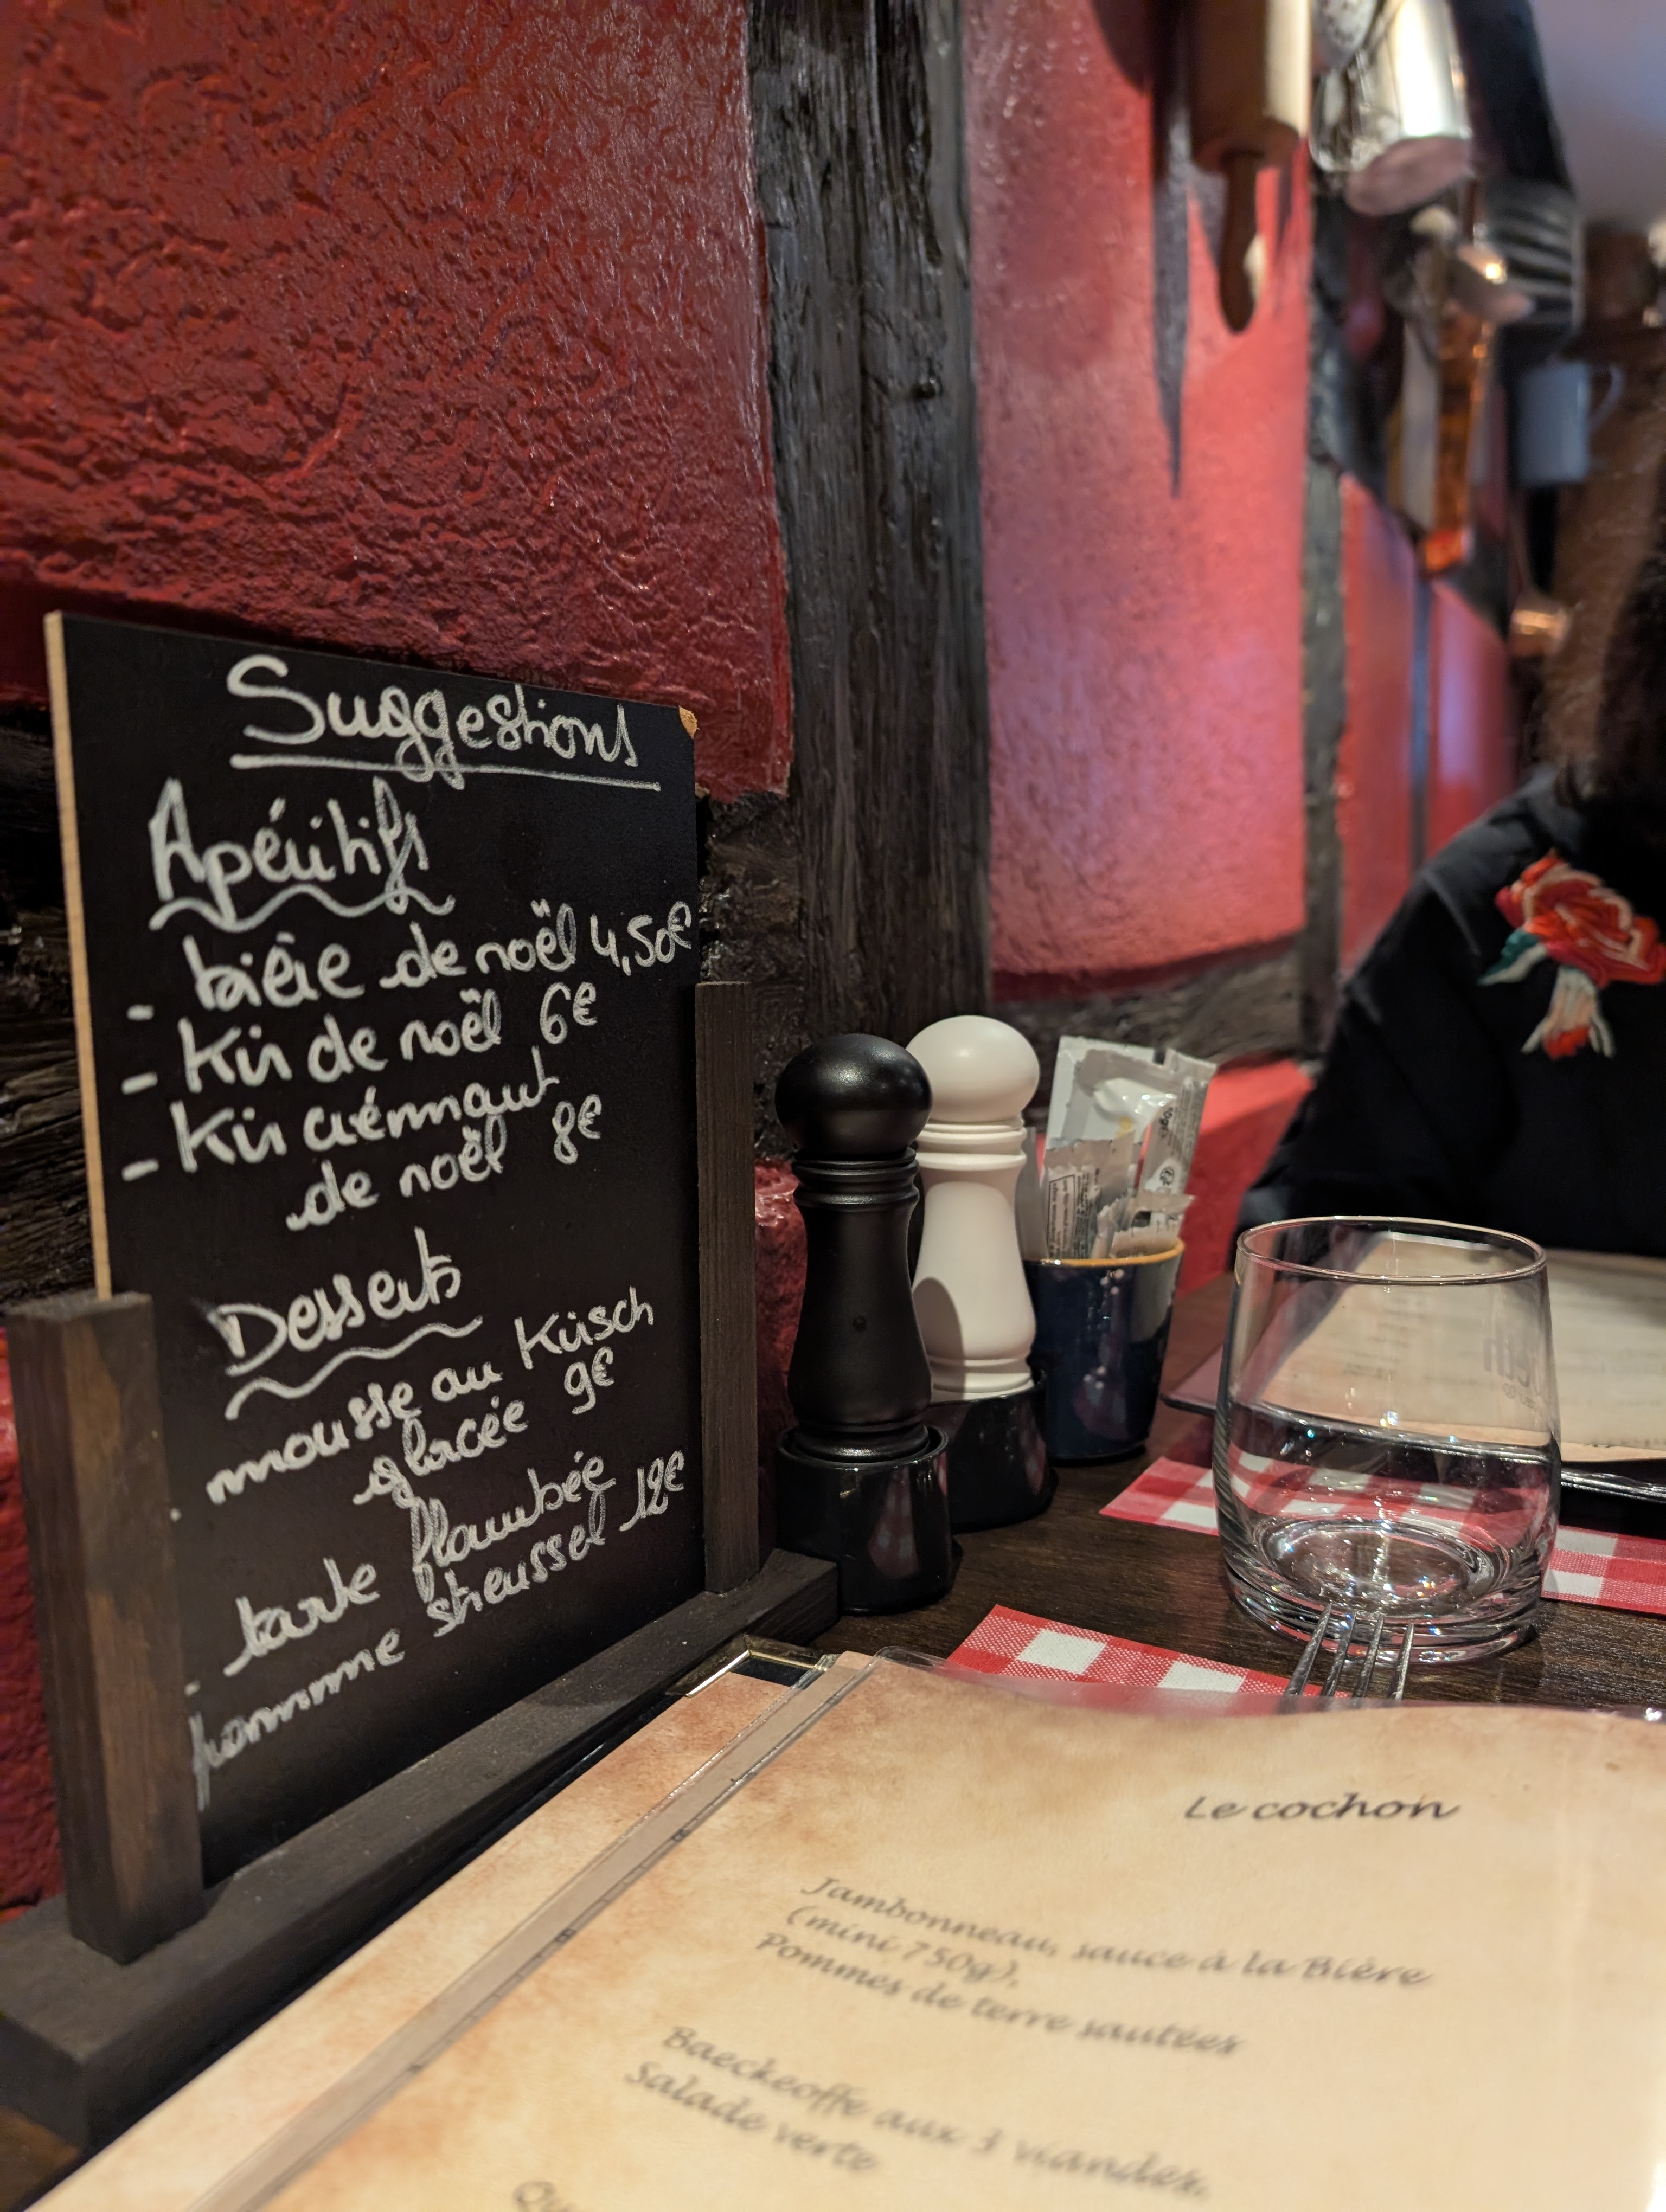 Suggestions
Apéritifs
- bière de noël 4,50€
- Kir de noël 6€
- Kir crémant
de noël 8€
Desserts
. mousse au Kirsch
glacée 9€
. tarte flambée
pomme streussel 12€
Le cochon
Jambonneau, sauce à la Bière
(mini 750g),
Pommes de terre sautées
Baeckeoffe aux 3 viandes,
Salade verte